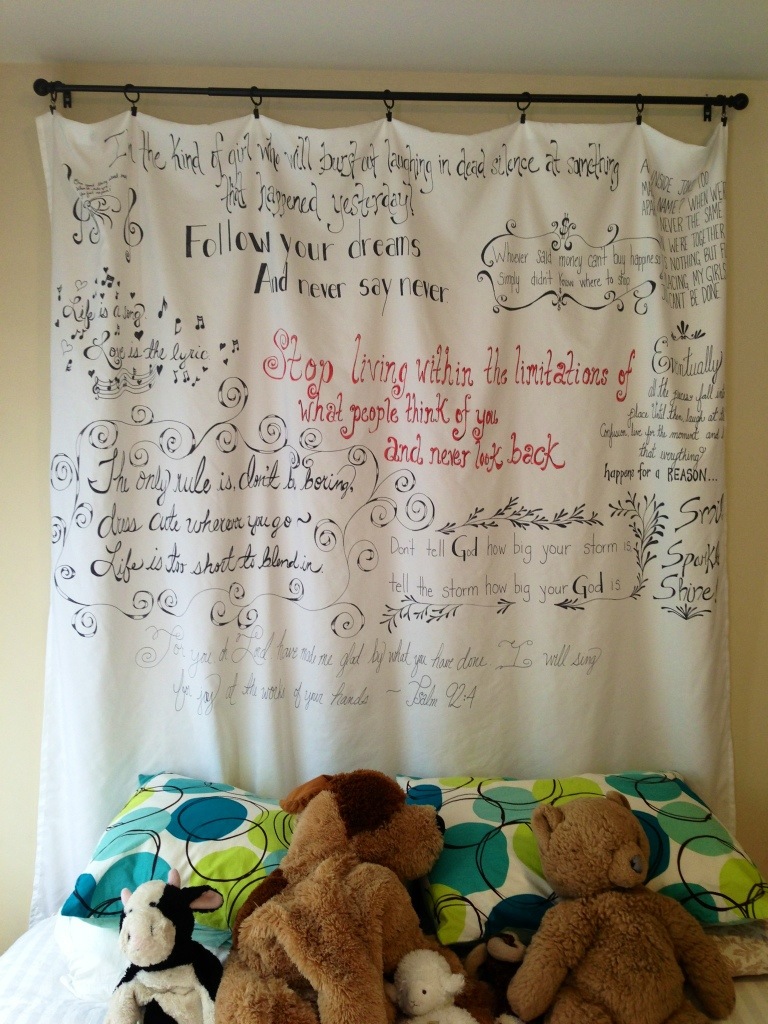 Im the kind of girl who will burst out laughing in dead silence at something
that happened yesterday!
A
INSIDE JO
NAME! WHEN WE
NEVER THE SAME
WE BE TOGETHER
S NOTHING BUT F
ACING MY GIRLS
CANT BE DONE
Follow your dreams
And never say never
Whoever said money can't buy happiness
simply didn't know where to shop
Life is a song.
Love is the lyric
Stop living within the limitations of
what people think of you
and never look back
Eventually
all the pieces fall into
place Until then, laugh at the
Confusion, live for the moment and
that everything
happens for a REASON...
The only rule is, don't b boring,
dress cute wherever you go~
Life is too short to blend in.
Don't tell God how big your storm is,
tell the storm how big your God is
Smil
Sparkl
Shine!
For you oh Lord have made me glad by what you have done I will sing
for joy at the works of your hands. ~ Psalm 92:4